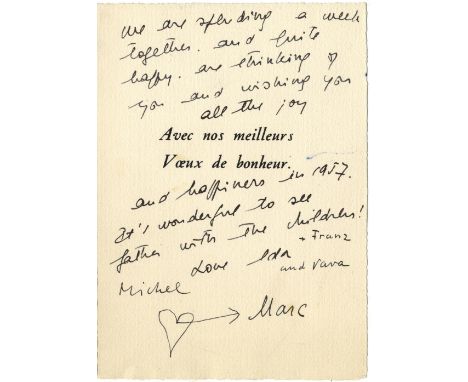 we are spending a week
together. and quite
happy. are thinking of
you and wishing you
all the joy
Avec nos meilleurs
Vœux de bonheur.
and happiness in 1957.
It's wonderful to see
father with the children!
+ Franz
Love Ida
and Vava
Michel
Marc